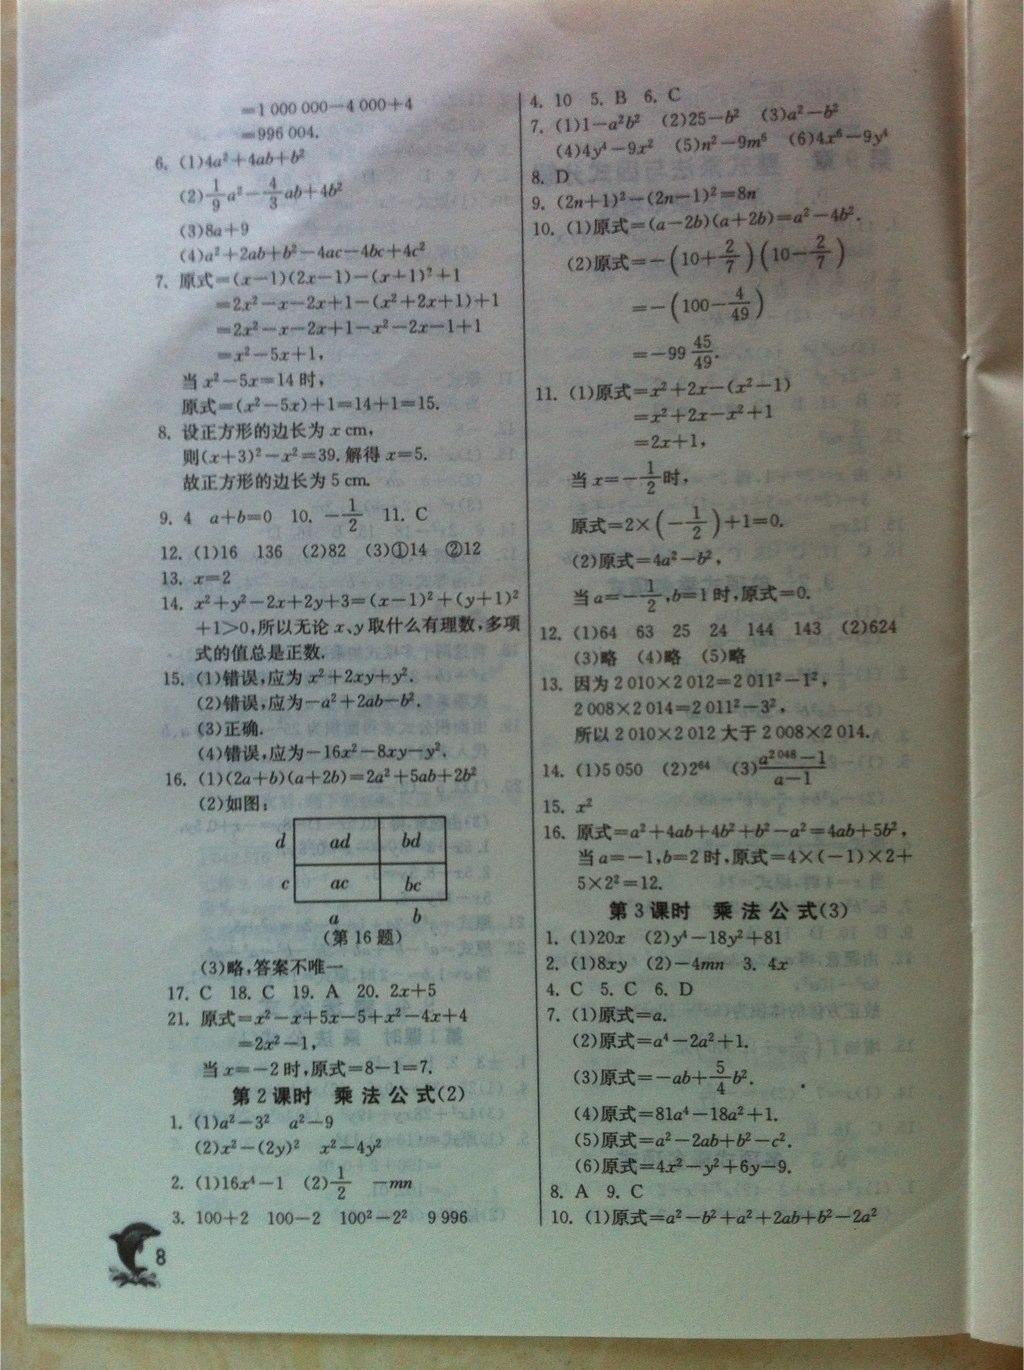 =1 000 000-4 000+4
=996 004.
6. (1)4a²+4ab+b²
(2)1/9a²-4/3ab+4b²
(3)8a+9
(4)a²+2ab+b²-4ac-4bc+4c²
7. 原式=(x-1)(2x-1)-(x+1)²+1
=2x²-x-2x+1-(x²+2x+1)+1
=2x²-x-2x+1-x²-2x-1+1
=x²-5x+1,
当 x²-5x=14 时,
原式=(x²-5x)+1=14+1=15.
8. 设正方形的边长为 x cm,
则(x+3)²-x²=39. 解得 x=5.
故正方形的边长为 5 cm.
9. 4 a+b=0 10. -1/2 11. C
12. (1)16 136 (2)82 (3)①14 ②12
13. x=2
14. x²+y²-2x+2y+3=(x-1)²+(y+1)²
+1>0,所以无论 x、y 取什么有理数,多项
式的值总是正数.
15. (1)错误,应为 x²+2xy+y².
(2)错误,应为-a²+2ab-b².
(3)正确.
(4)错误,应为-16x²-8xy-y².
16. (1)(2a+b)(a+2b)=2a²+5ab+2b²
(2)如图:
d ad bd
c ac bc
a b
(第 16 题)
(3)略,答案不唯一
17. C 18. C 19. A 20. 2x+5
21. 原式=x²-x+5x-5+x²-4x+4
=2x²-1,
当 x=-2 时,原式=8-1=7.
第 2 课时 乘法公式(2)
1. (1)a²-3² a²-9
(2)x²-(2y)² x²-4y²
2. (1)16x⁴-1 (2)1/2 -mn
3. 100+2 100-2 100²-2² 9 996
8
4. 10 5. B 6. C
7. (1)1-a²b² (2)25-b² (3)a²-b²
(4)4y⁴-9x² (5)n²-9m⁶ (6)4x⁶-9y⁴
8. D
9. (2n+1)²-(2n-1)²=8n
10. (1)原式=(a-2b)(a+2b)=a²-4b².
(2)原式=-(10+2/7)(10-2/7)
=-(100-4/49)
=-99 45/49.
11. (1)原式=x²+2x-(x²-1)
=x²+2x-x²+1
=2x+1,
当 x=-1/2时,
原式=2×(-1/2)+1=0.
(2)原式=4a²-b²,
当 a=-1/2,b=1 时,原式=0.
12. (1)64 63 25 24 144 143 (2)624
(3)略 (4)略 (5)略
13. 因为 2 010×2 012=2 011²-1²,
2 008×2 014=2 011²-3²,
所以 2 010×2 012 大于 2 008×2 014.
14. (1)5 050 (2)2⁶⁴ (3)(a²⁰⁴⁸-1)/(a-1)
15. x²
16. 原式=a²+4ab+4b²+b²-a²=4ab+5b²,
当 a=-1,b=2 时,原式=4×(-1)×2+
5×2²=12.
第 3 课时 乘法公式(3)
1. (1)20x (2)y⁴-18y²+81
2. (1)8xy (2)-4mn 3. 4x
4. C 5. C 6. D
7. (1)原式=a.
(2)原式=a⁴-2a²+1.
(3)原式=-ab+5/4b².
(4)原式=81a⁴-18a²+1.
(5)原式=a²-2ab+b²-c².
(6)原式=4x²-y²+6y-9.
8. A 9. C
10. (1)原式=a²-b²+a²+2ab+b²-2a²